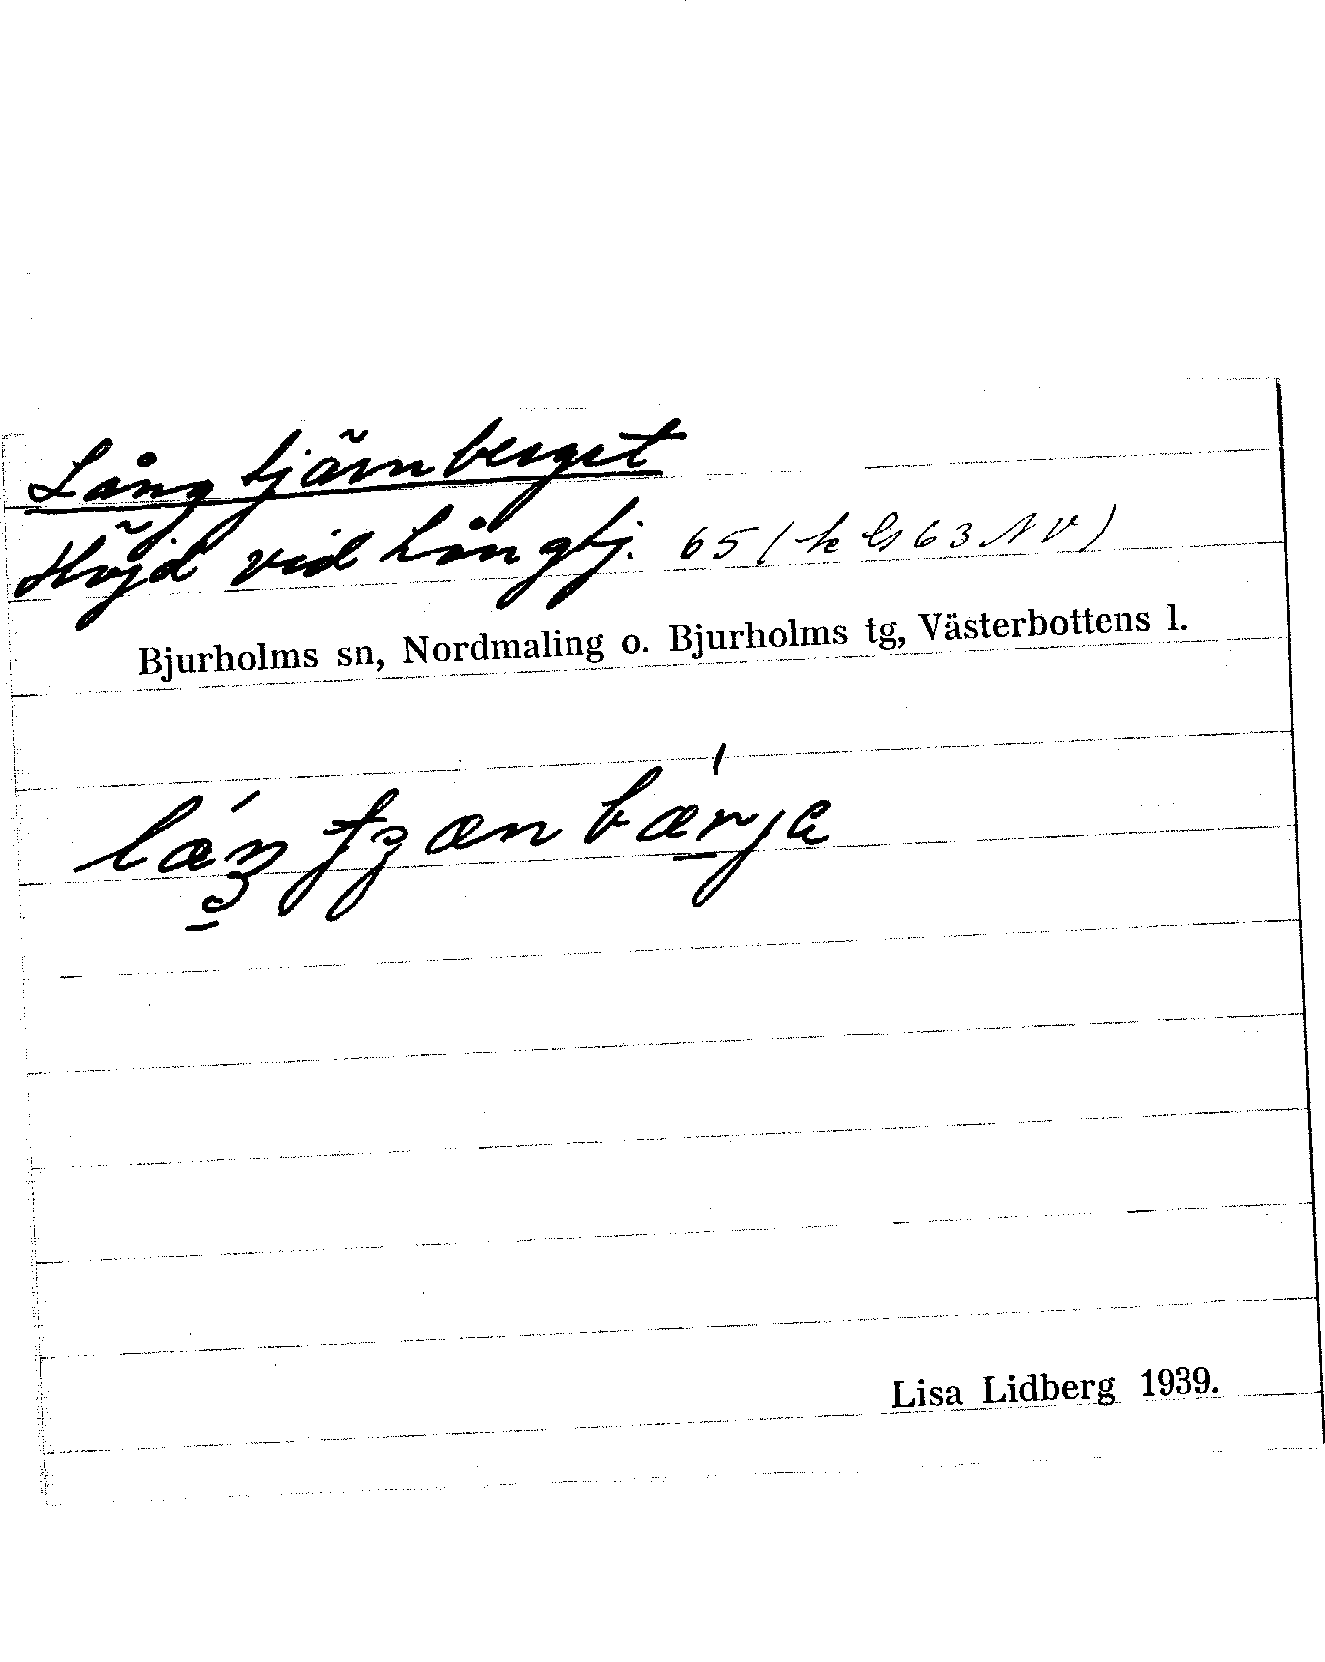 Långtjärnberget
Höjd vid Långtj. 65 (k bl 63 NV)
Bjurholms sn, Nordmaling o. Bjurholms tg, Västerbottens l.
Lisa Lidberg 1939.